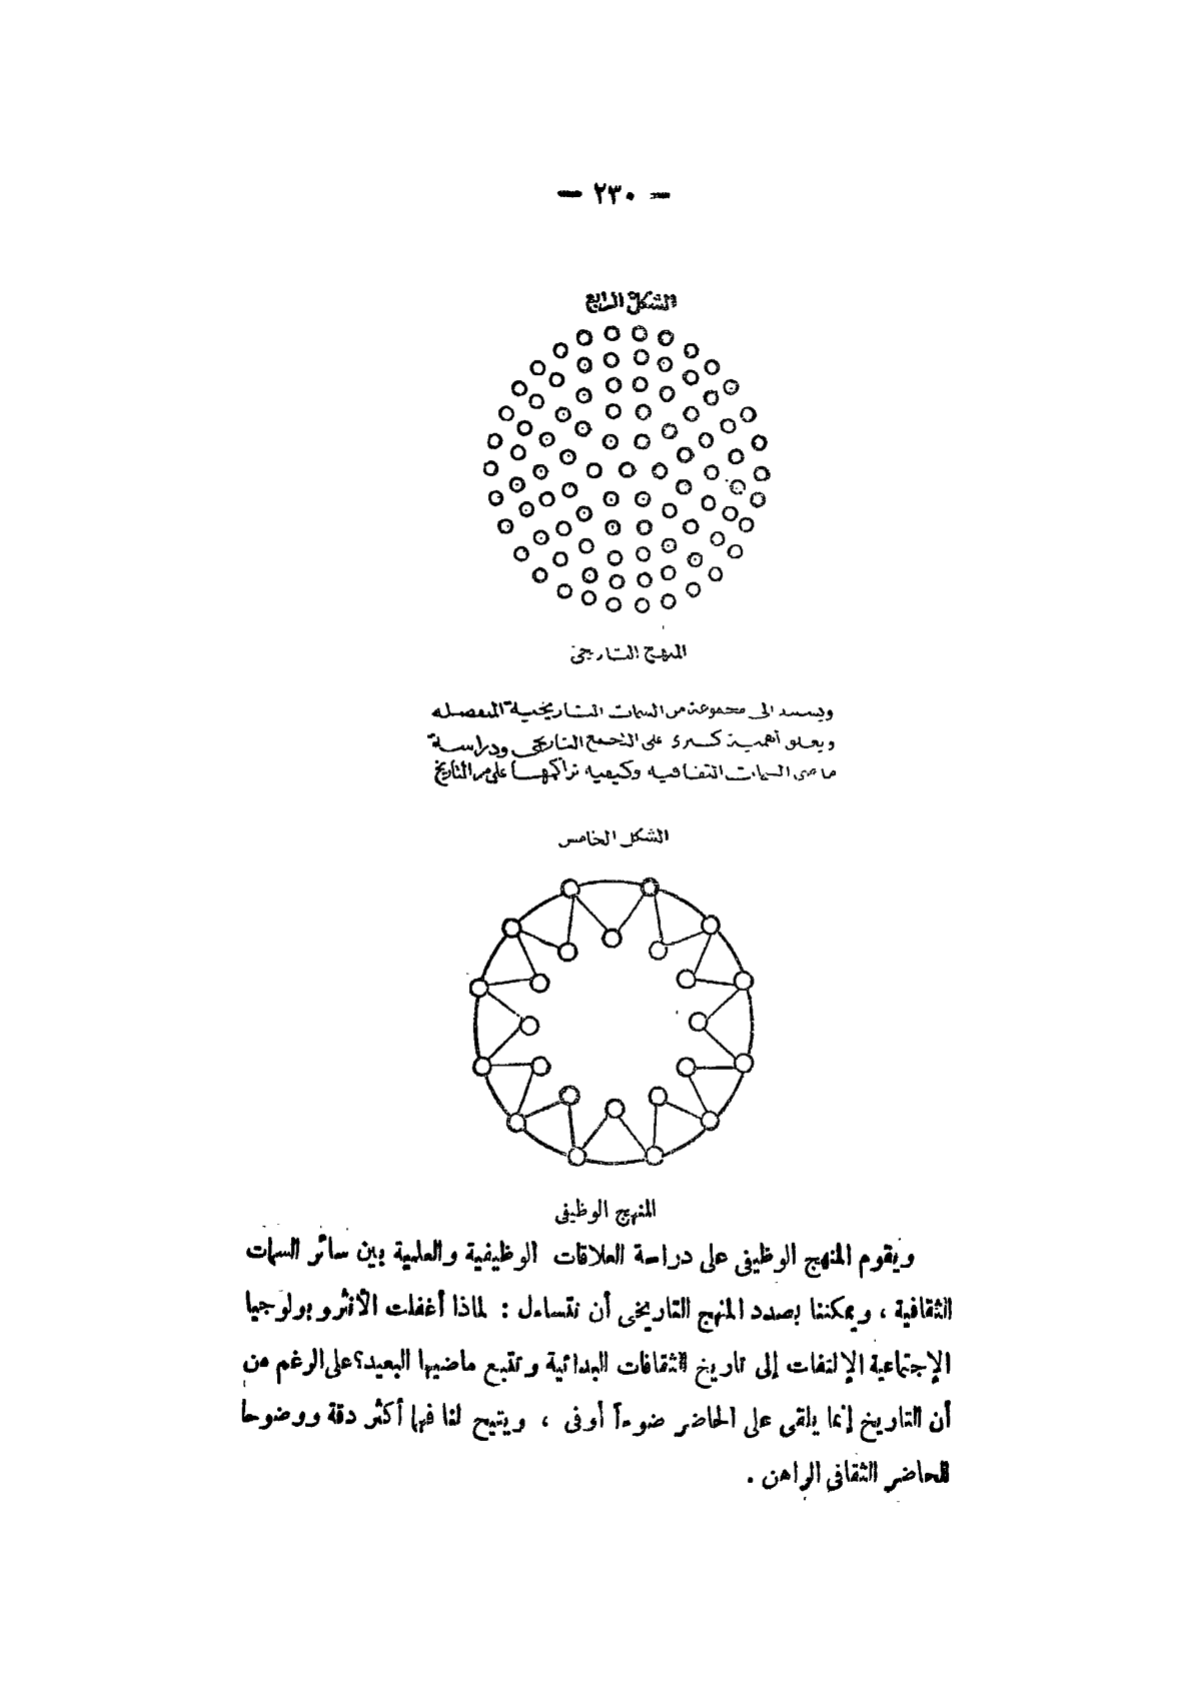 — ٢٣٠ —
الشكل الرابع
المنهج التاريخى
ويستند الى مجموعة من السمات التاريخية المنفصله
ويعلق أهمية كبرى على التجمع التاريخى ودراسة
ماضى السمات الثقافيه وكيفيه تراكمها على مر التاريخ
الشكل الخامس
المنهج الوظيفى
ويقوم المنهج الوظيفى على دراسة العلاقات الوظيفية والعلمية بين سائر السمات
الثقافية ، ويمكننا بصدد المنهج التاريخى أن نتساءل : لماذا أغفلت الأنثروبولوجيا
الإجتماعية الإلتفات إلى تاريخ الثقافات البدائية وتتبع ماضيها البعيد؟ على الرغم من
أن التاريخ إنما يلقى على الحاضر ضوءاً أوفى ، ويتيح لنا فهما أكثر دقة ووضوحا
للحاضر الثقافى الراهن .